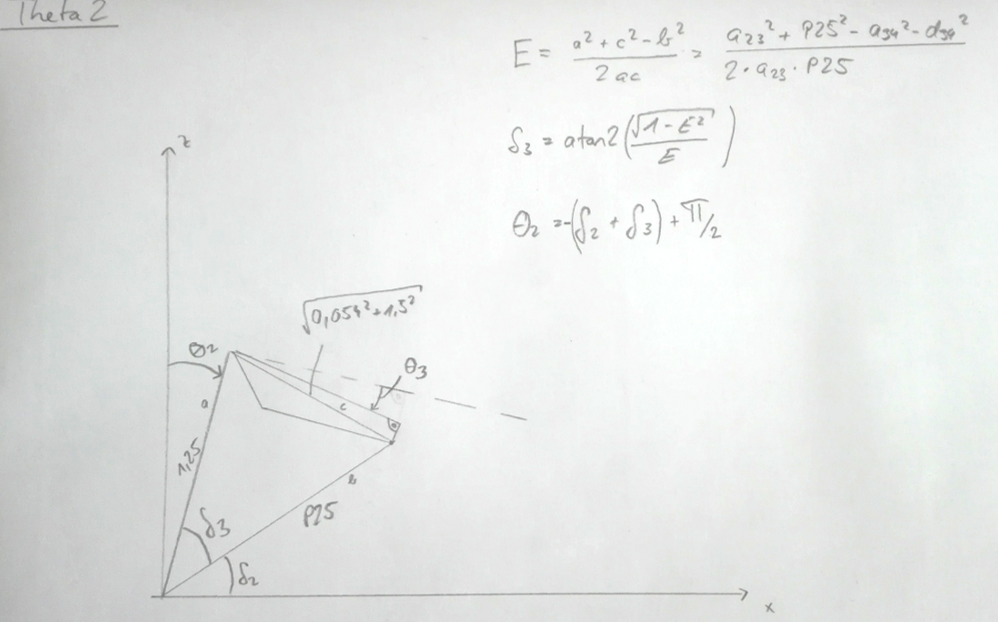 Theta 2
E = (a² + c² - b²) / (2ac) = (a₂₃² + P25² - a₃₄² - d₃₄²) / (2·a₂₃·P25)
δ₃ = atan2(√(1-E²) / E)
θ₂ = -(δ₂ + δ₃) + π/2
z
√(0,054² + 1,5²)
θ2
θ3
a
c
1,25
b
P25
δ3
δ₂
x